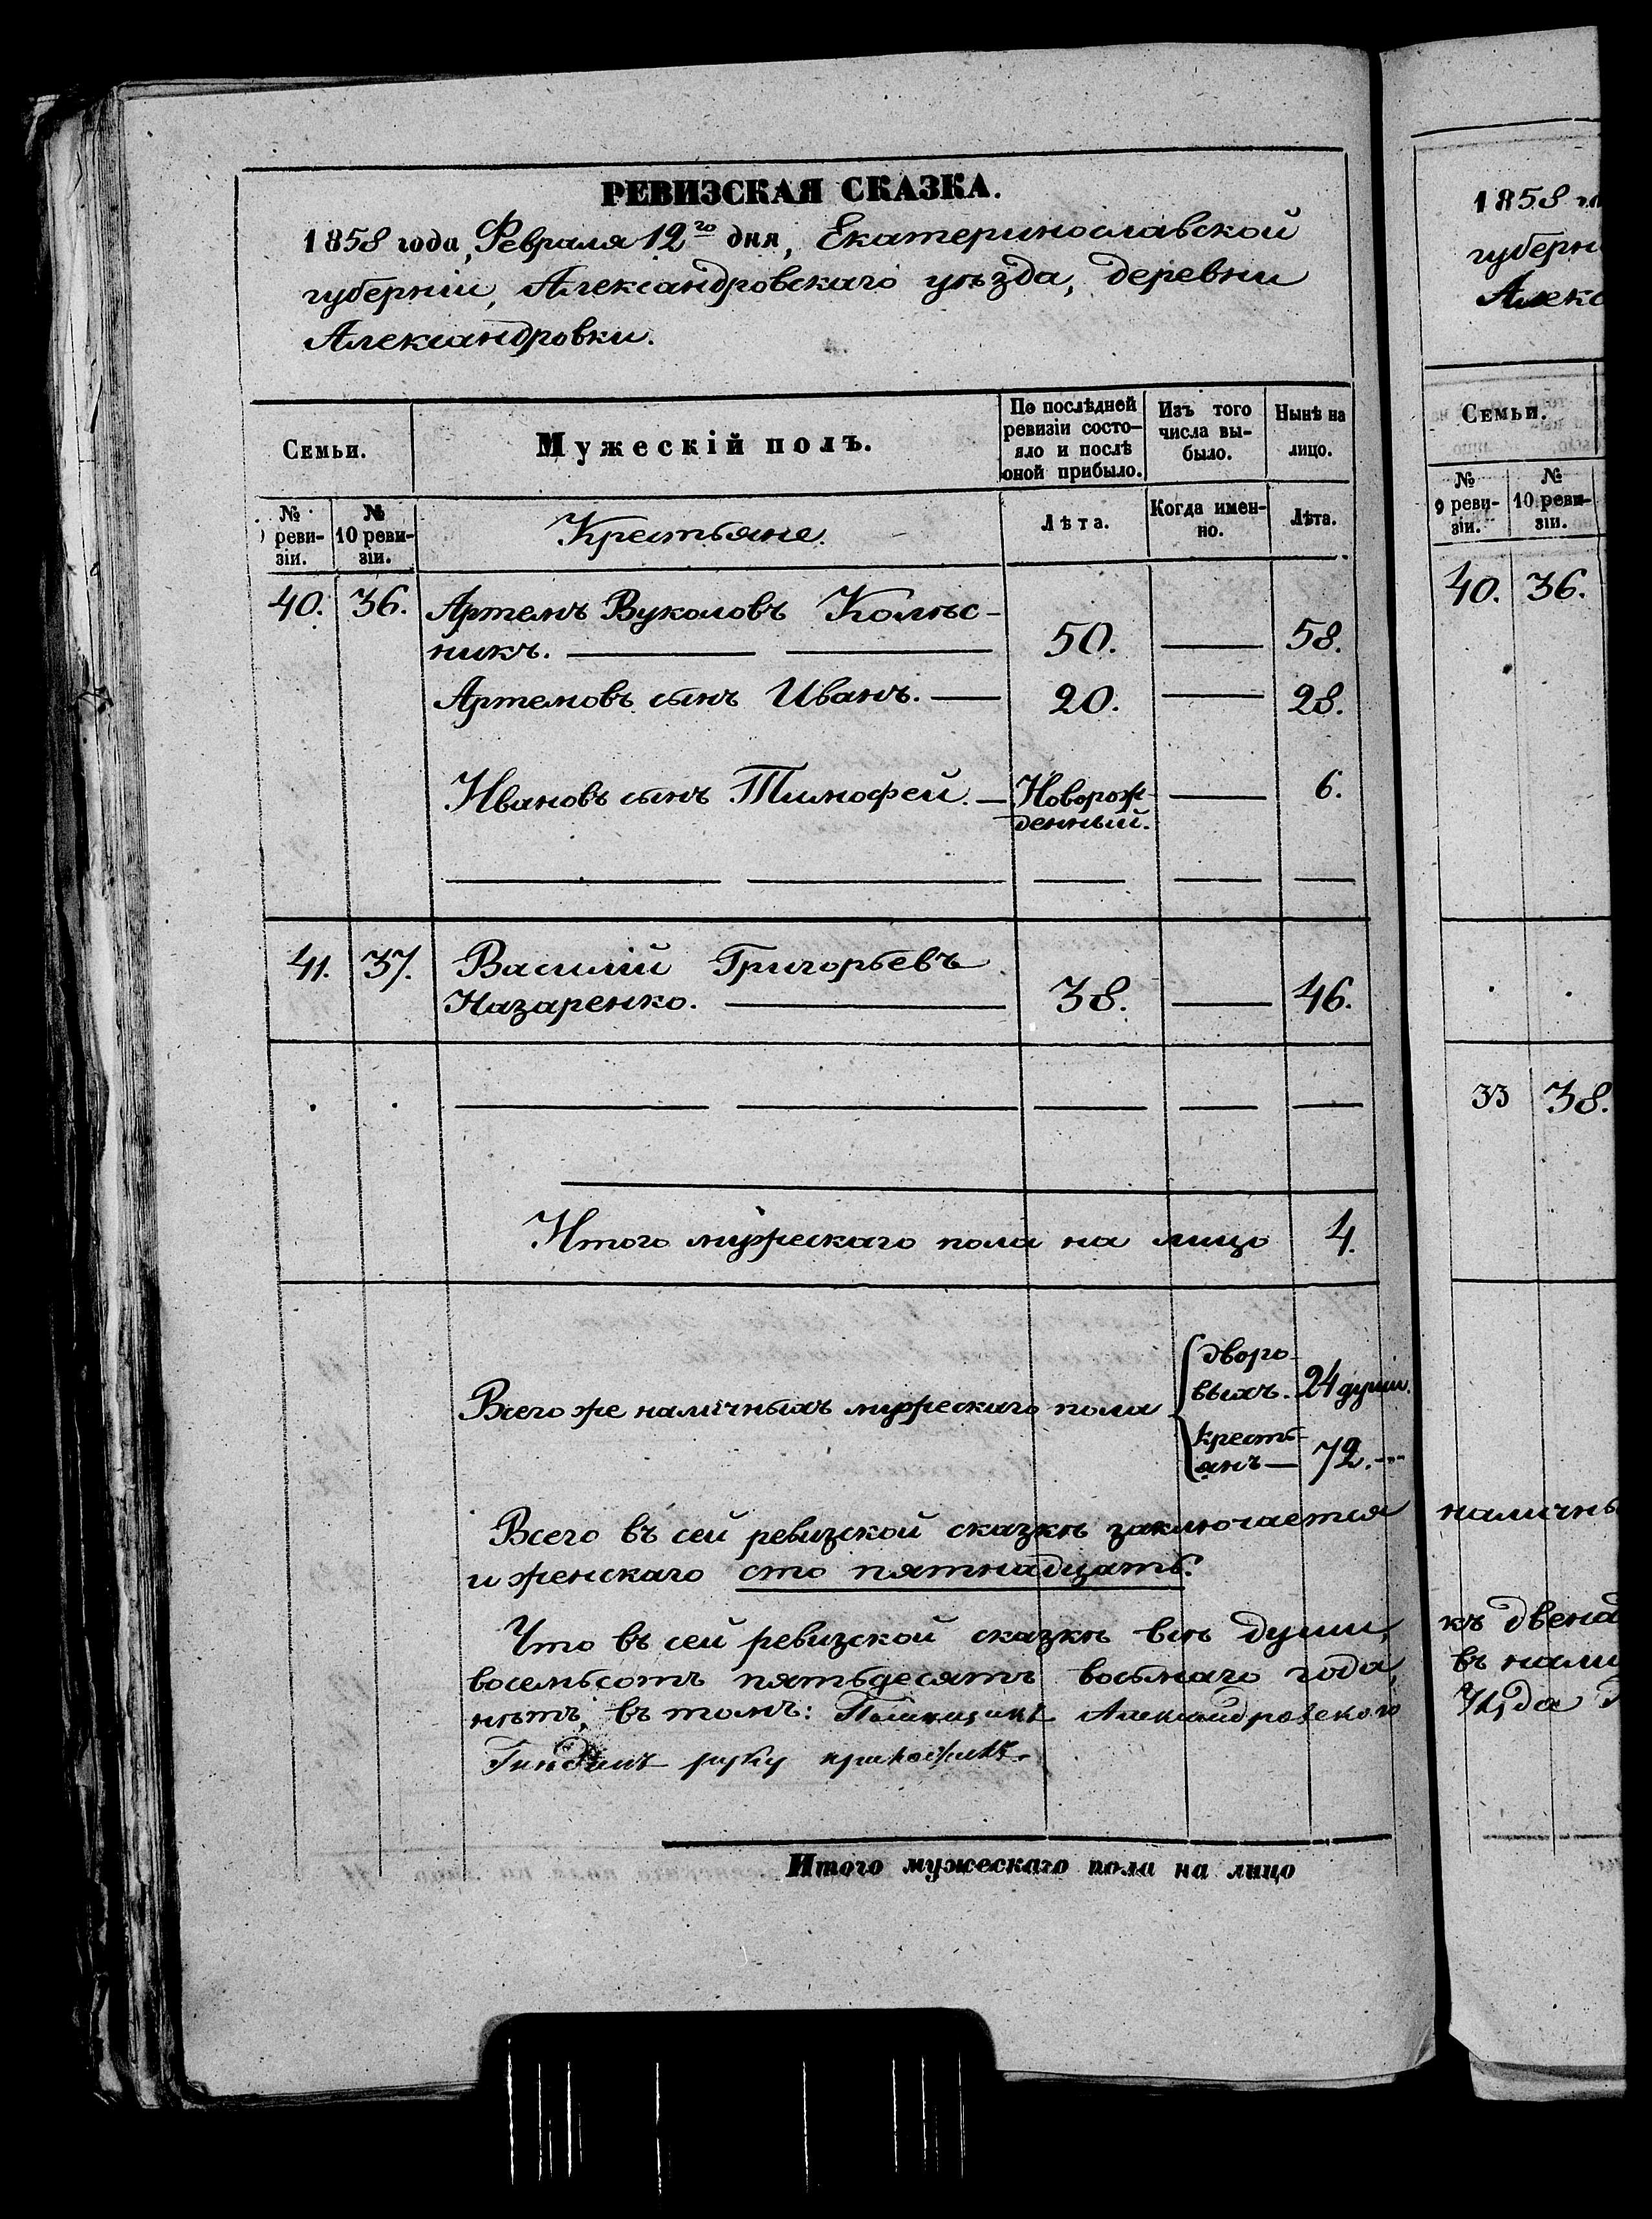 РЕВИЗСКАЯ СКАЗКА.
1858 года, Февраля 12го дня, Екатеринославской
губерніи, Александровскаго уѣзда, деревни
Александровки.
Семьи.
Мужескій полъ.
По послѣдней ревизіи состо-
яло и послѣ
оной прибыло.
Изъ того
числа вы-
было.
Нынѣ на
лицо.
№
реви-
зіи.
№
10 реви-
зіи.
Крестьяне.
Лѣта.
Когда имен-
но.
Лѣта.
40. 36. Артемъ Вуколовъ Колѣс-
никъ. 50. 58.
Артемовъ сынъ Иванъ. 20. 28.
Ивановъ сынъ Тимофей.Новорож-
денный. 6.
41. 37. Василій Григорьевъ
Назаренко. 38. 46.
Итого мужескаго пола на лицо 4.
Всего же наличныхъ мужескаго пола
дворо-
выхъ. 24 души.
кресть-
янъ 72.
Всего въ сей ревизской сказкѣ заключается
и женскаго сто пятнадцать.
Что въ сей ревизской сказкѣ всѣ души,
восемьсотъ пятьдесятъ восьмаго года,
нѣтъ, въ томъ: Помѣщикъ Александровскаго
руку приложилъ.
Итого мужескаго пола на лицо
1858
губерн
Алекс
Семьи.
№
9 реви-
зіи.
№
10 реви-
зіи.
40. 36.
33 38.
наличны
къ двена
въ нали